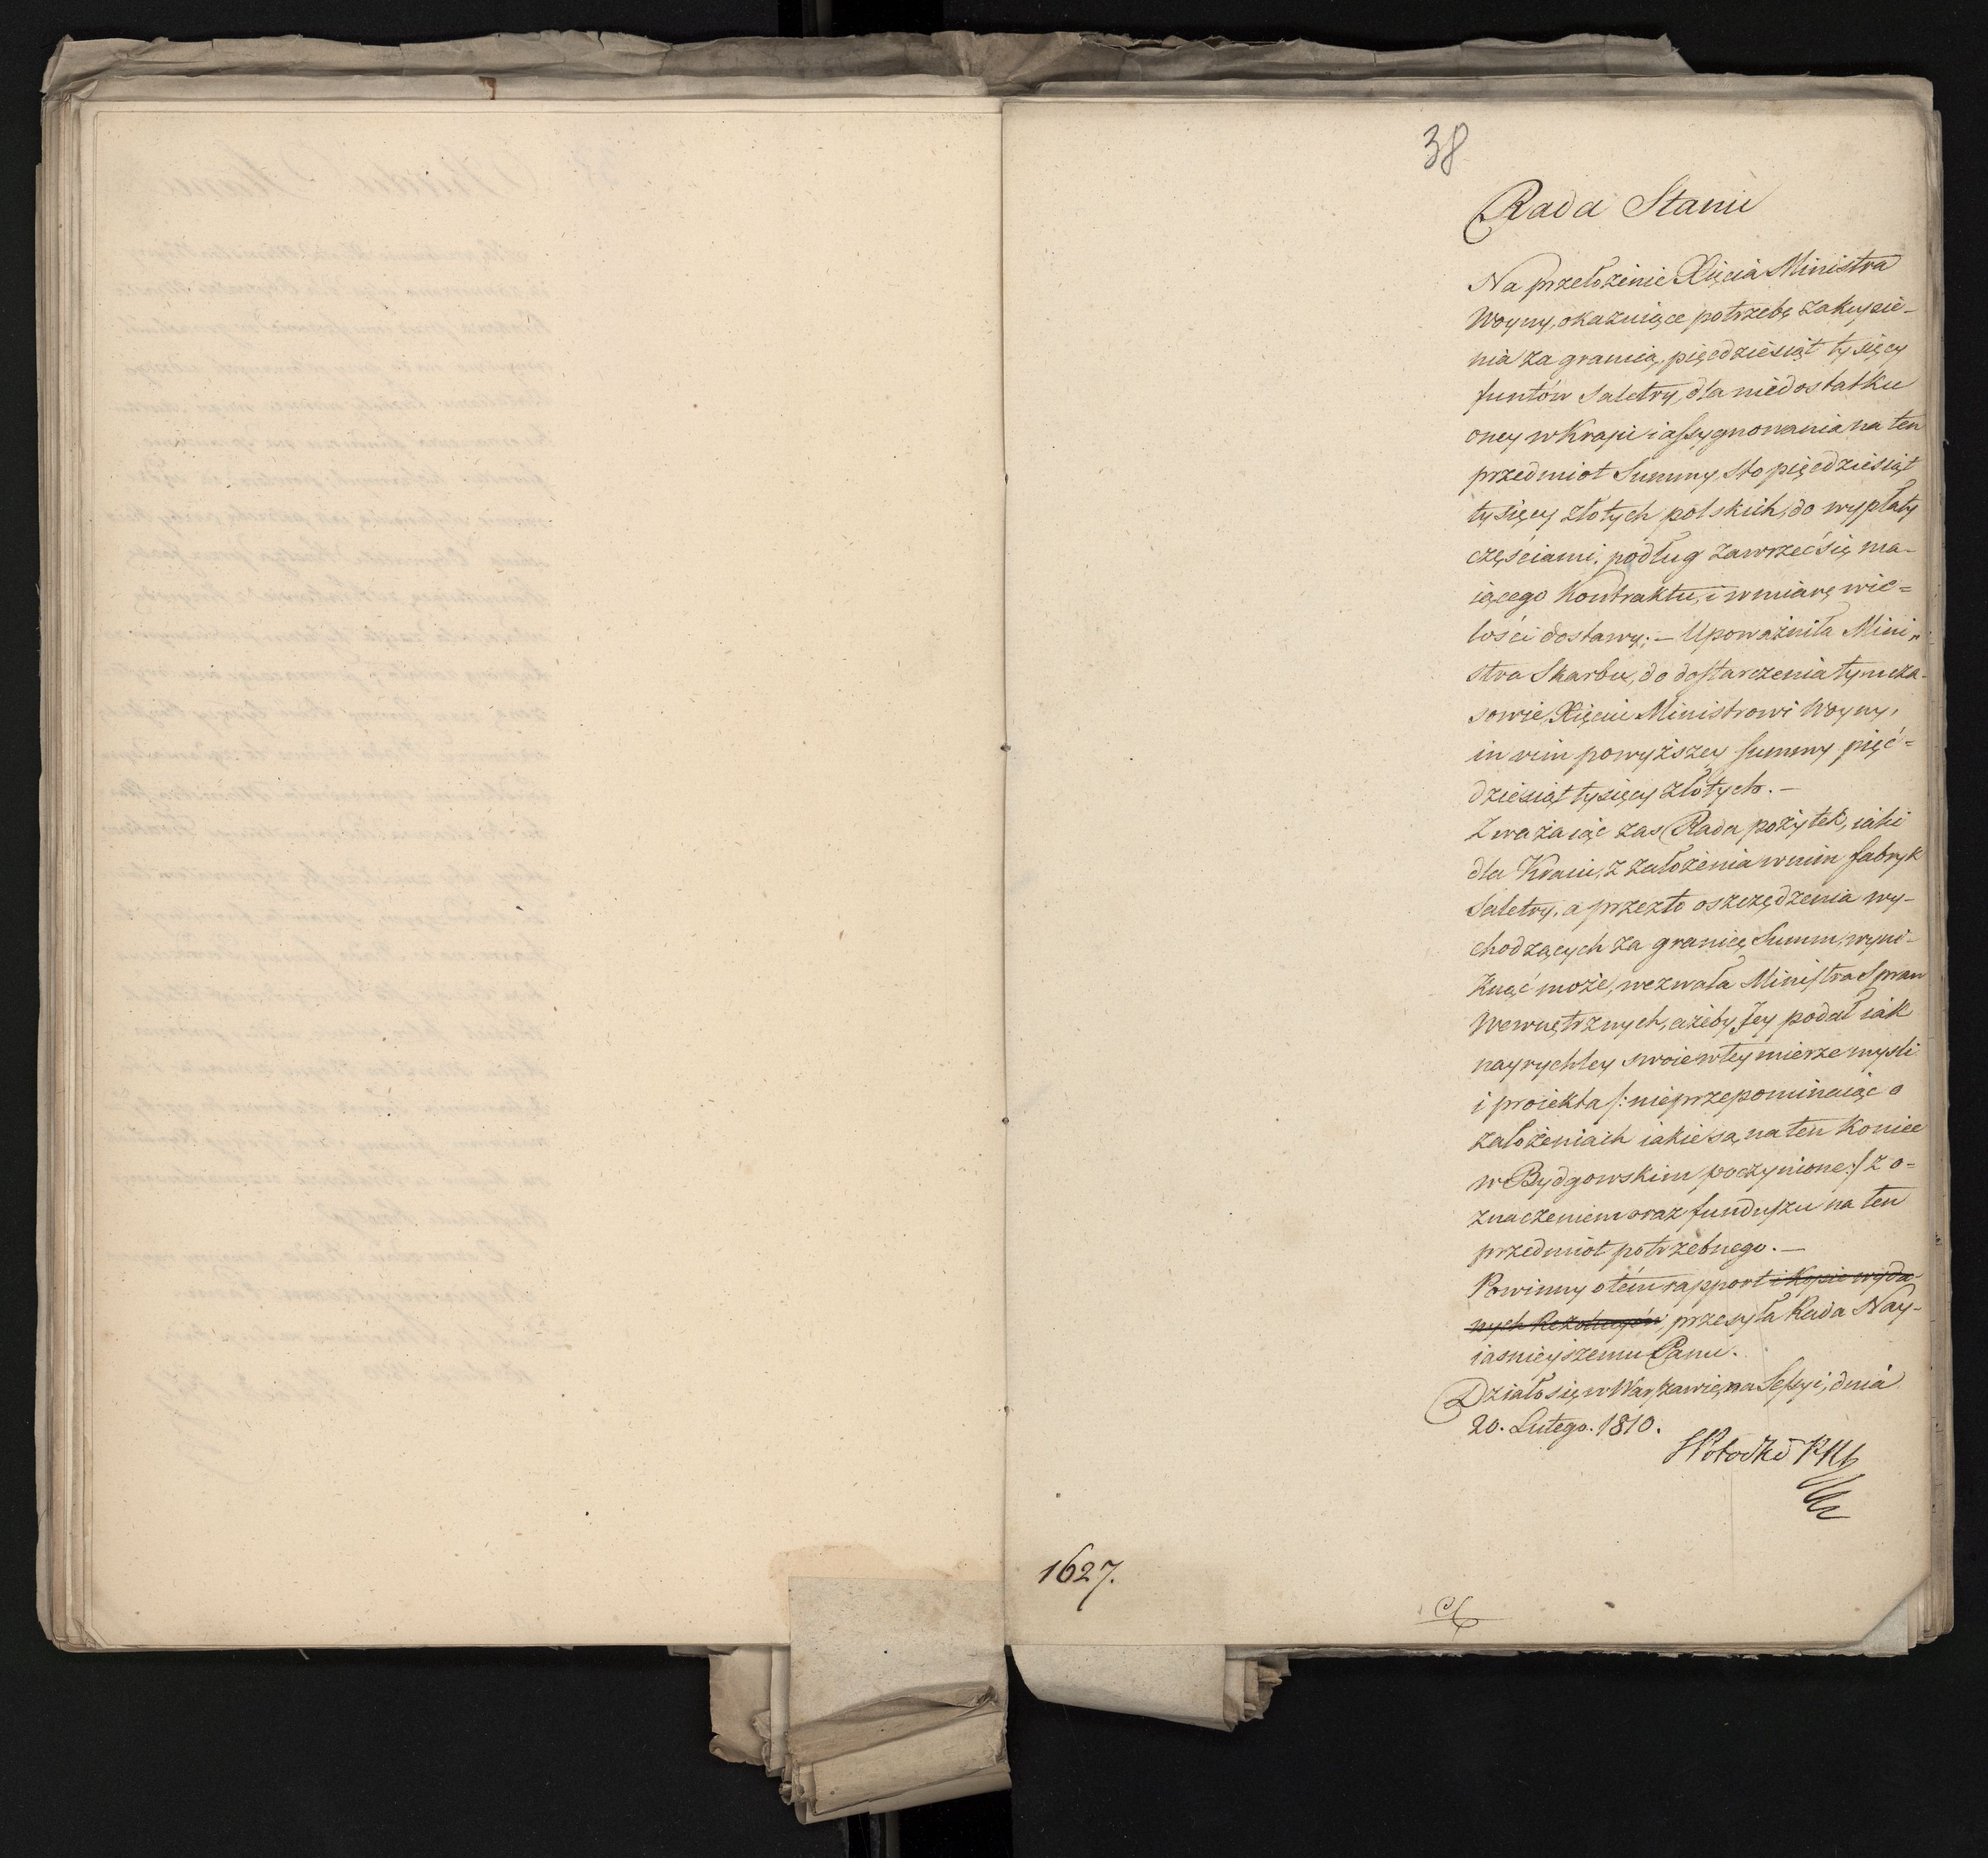 38
Rada Stanu
Na przełożenie Xięcia Ministra
Woyny, okazuiące potrzebę zakupie-
nia za granicą, pięcdziesiąt tysięcy
funtów Saletry, dla niedostatku
oney w Kraju i assygnowania na ten
przedmiot Summy, sto pięcdziesiąt
tysięcy złotych polskich, do wypłaty
częściami, podług zawrzeć się ma-
iącego Kontraktu, i w miarę wie=
lości dostawy; – Upoważniła Mini,
stra Skarbu, do dostarczenia tymcza-
sowie, Xięciu Ministrowi Woyny,
in vim powyższey Summy pięć=
dziesiąt tysięcy złotych. –
Zważaiąc zas Rada pożytek, iaki
dla Kraiu, z założenia w nim fabryk
Saletry, a przezto oszczędzenia wy-
chodzących za granicę Summ, wyni-
knąć może, wezwała Ministra Spraw
Wewnętrznych, ażeby Jey podał iak
nayrychley swoie w tey mierze mysli
i proiekta /: nieprzepominaiąc o
założeniach iakie są na ten koniec
w Bydgowskim poczynione :/ z o=
znaczeniem oraz funduszu na ten
przedmiot potrzebnego. –
Powinny o tém rapport i Kopie wyda-
nych Rezolucyów, przesyła Rada Nay-
iasnieyszemu Panu.
Działo się w Warszawie, na Sessyi, dnia
20. Lutego. 1810.
1627.